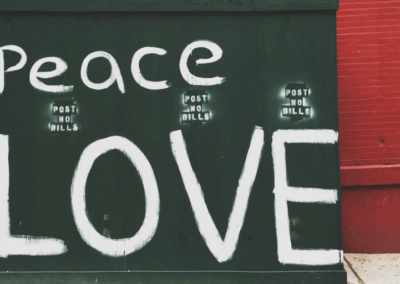 Peace
POST
NO
BILLS
POST
NO
BILLS
POST
NO
BILLS
LOVE